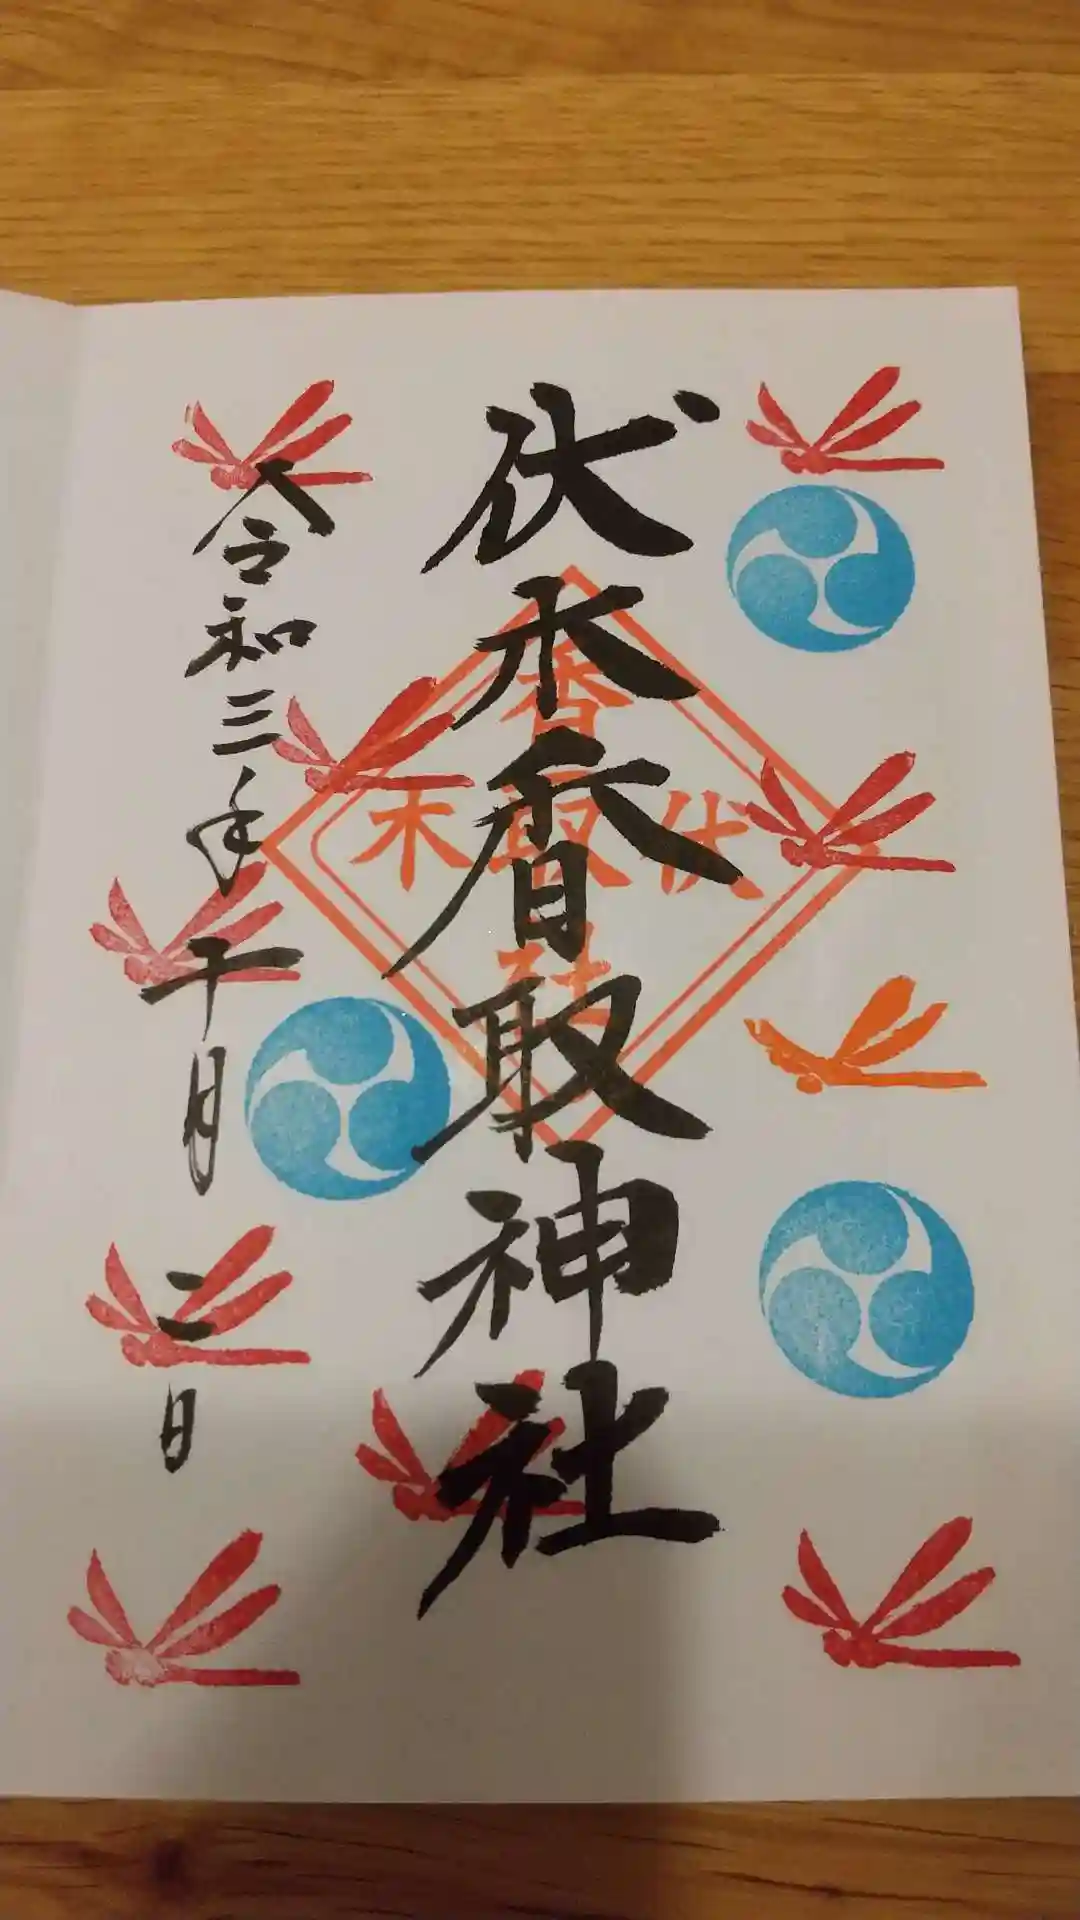 伏木香取神社
令和三年十月二日
香
伏取木
社